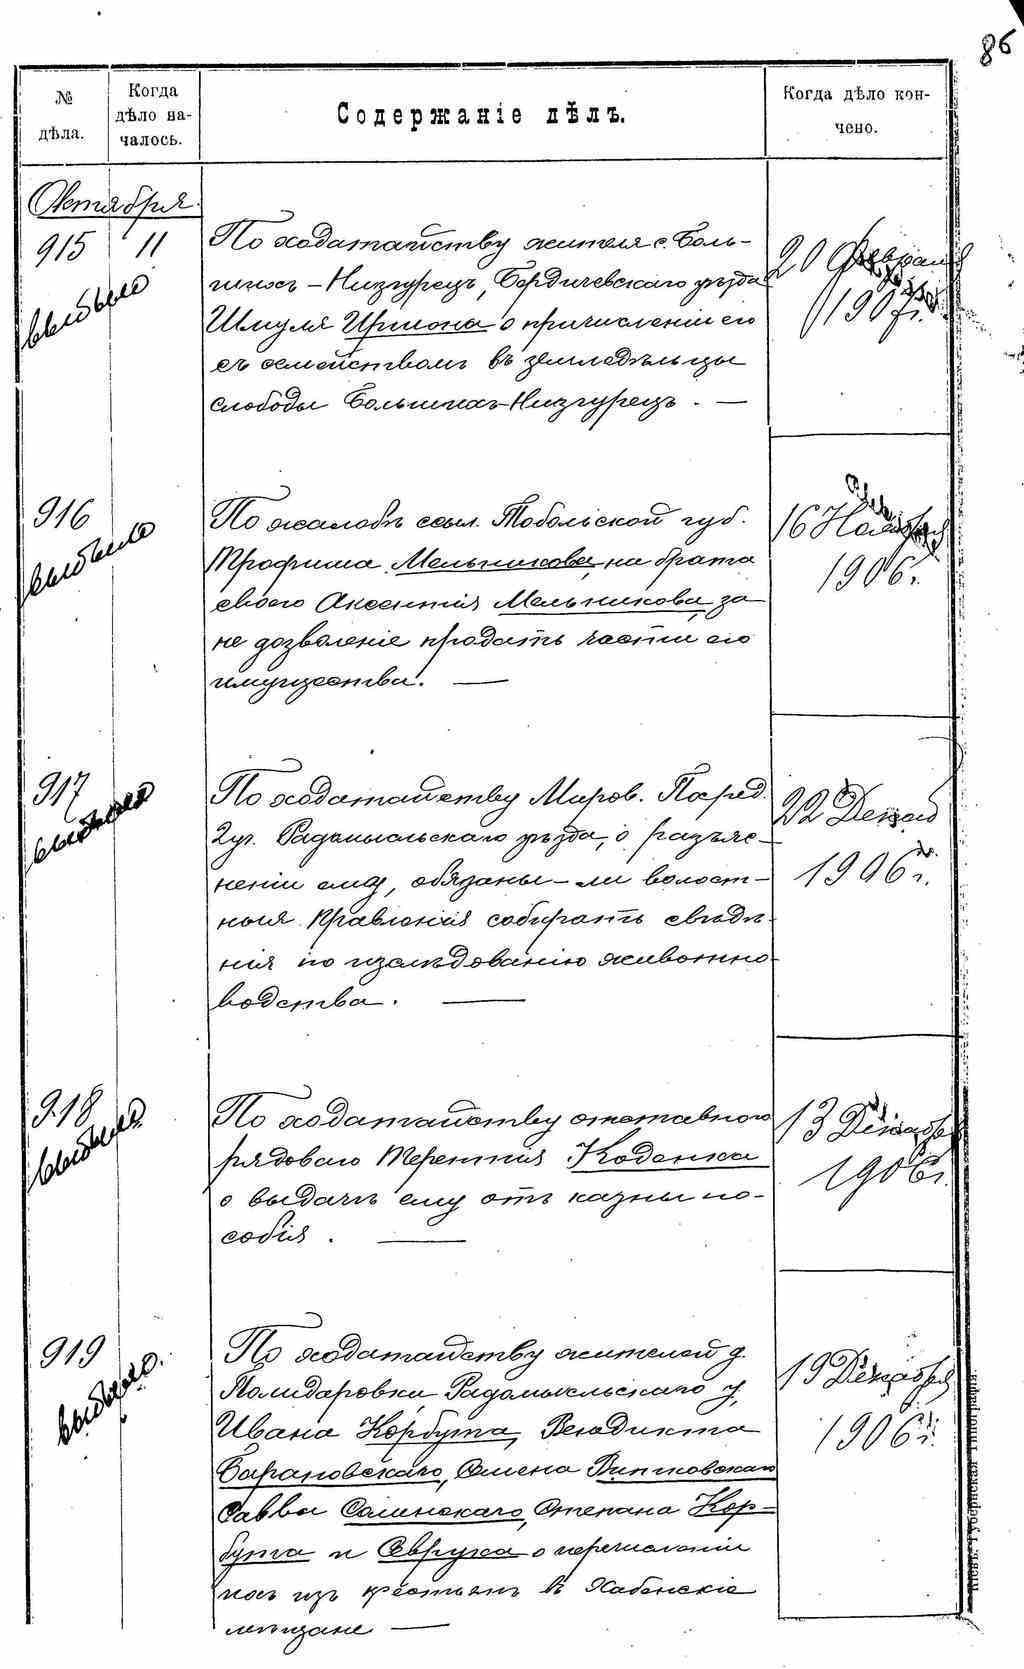 86
№ дѣла.
Когда дѣло началось.
Содержаніе дѣлъ.
Когда дѣло кончено.
Октября
915 11
выбыло
По ходатайству жителя с. Боль-
шихъ-Низгурецъ, Бердичевскаго уѣзда
Шмуля Иршона о причисленіи его
съ семействомъ въ земледѣльцы
слободы Большихъ-Низгурецъ. —
20 Февраля
1907 г.
916
выбыло
По жалобѣ ссыл. Тобольской губ.
Трофима Мельникова, на брата
своего Аксентія Мельникова, за
не дозволеніе продать части его
имущества. —
16 Ноября
1906 г.
917
выбыло
По ходатайству Миров. Посред.
2 уч. Радомысльскаго уѣзда, о разъяс-
неніи ему, обязаны-ли волост-
ныя Правленія собирать свѣдѣ-
нія по изслѣдованію животно-
водства. —
22 Декаб
1906 г.
918
выбыло
По ходатайству отставного
рядоваго Терентія Коденка
о выдачѣ ему отъ казны по-
собія. —
13 Декабря
1906 г.
919
выбыло.
По ходатайству жителей д.
Полидаровки Радомысльскаго у,
Ивана Корбута, Венедикта
Барановскаго, Семена Витковскаго
Саввы Солинскаго, Степана Кор-
бута и Севрука о перечисленіи
ихъ изъ крестьянъ въ Хабенскіе
мѣщане —
19 Декабря
1906 г.
Кіевъ. Губернская Типографія.